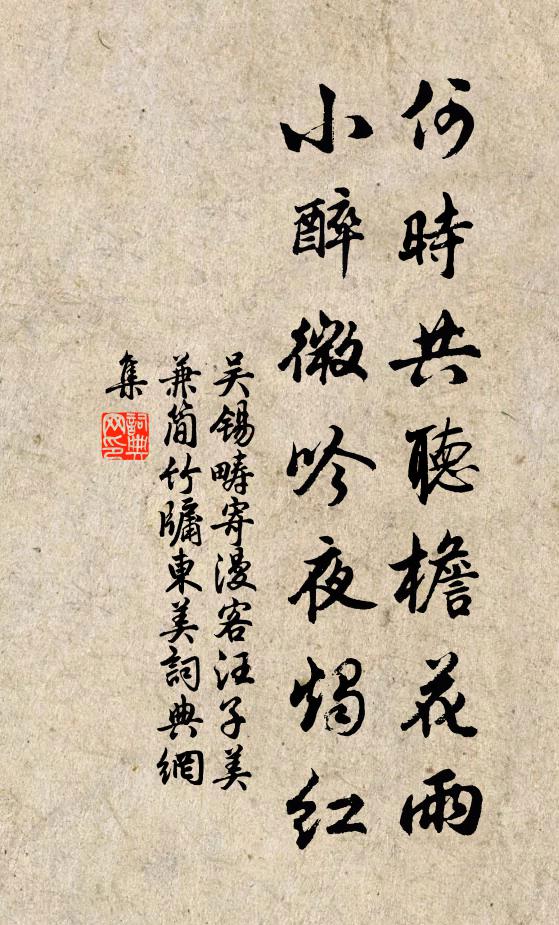 何時共聽檐花雨
小醉微吟夜燭紅
吳錫疇寄漫客汪子美
兼簡竹牖東美詞典網
集
詞典網印